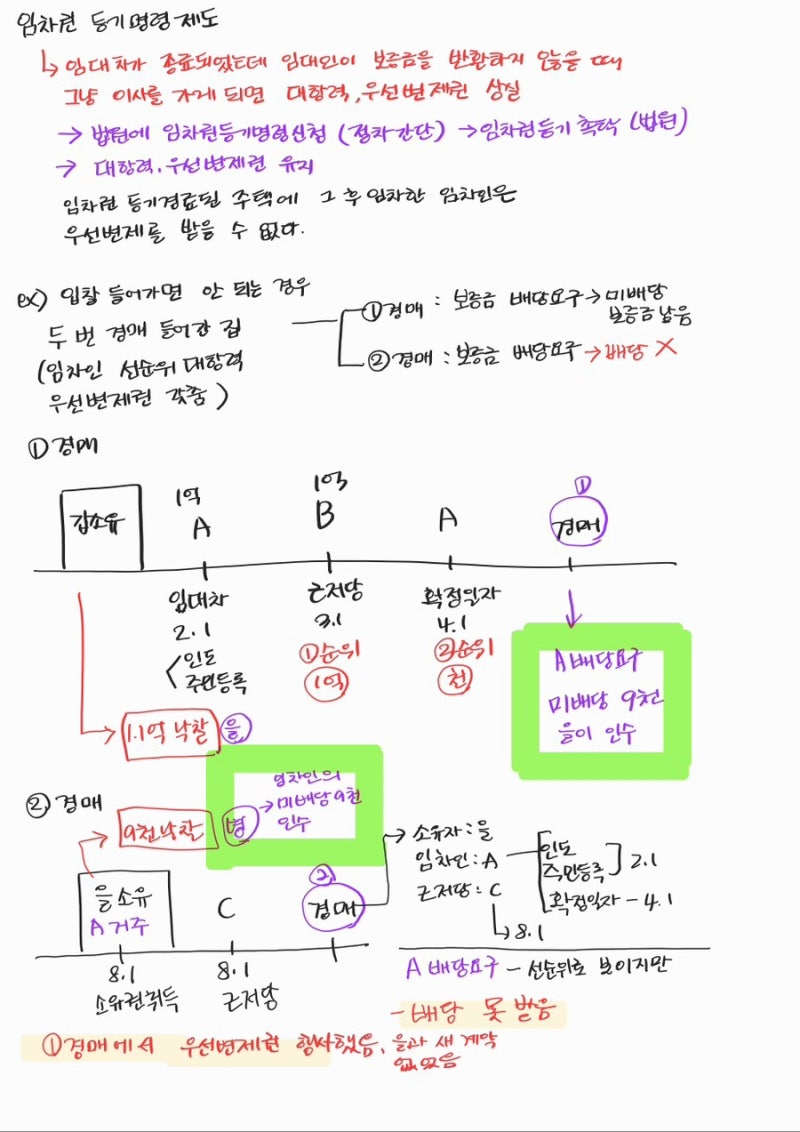 임차권 등기명령제도
↳ 임대차가 종료되었는데 임대인이 보증금을 반환하지 않을 때
그냥 이사를 가게 되면 대항력, 우선변제권 상실
→ 법원에 임차권등기명령신청 (절차간단) → 임차권등기 촉탁 (법원)
→ 대항력. 우선변제권 유지
임차권 등기경료된 주택에 그 후 임차한 임차인은
우선변제를 받을 수 없다.
ex) 입찰 들어가면 안 되는 경우
두 번 경매 들어간 집
(임차인 선순위 대항력
우선변제권 갖춤)
① 경매 : 보증금 배당요구 → 미배당
보증금 남음
② 경매 : 보증금 배당요구 → 배당 X
① 경매
갑소유
1억
A
1억
B
A
①
경매
임대차
2.1
인도
주민등록
근저당
3.1
①순위
1억
확정일자
4.1
②순위
천
A 배당요구
미배당 9천
을이 인수
1.1억 낙찰 을
② 경매
9천낙찰 병
임차인의
→ 미배당 9천
인수
을소유
A 거주
C
②
경매
8.1
소유권취득
8.1
근저당
→ 소유자 : 을
임차인 : A
근저당 : C
↳ 8.1
인도
주민등록 ] 2.1
확정일자 - 4.1
A 배당요구 - 선순위로 보이지만
- 배당 못 받음
① 경매에서 우선변제권 행사했음, 을과 새 계약
없었음